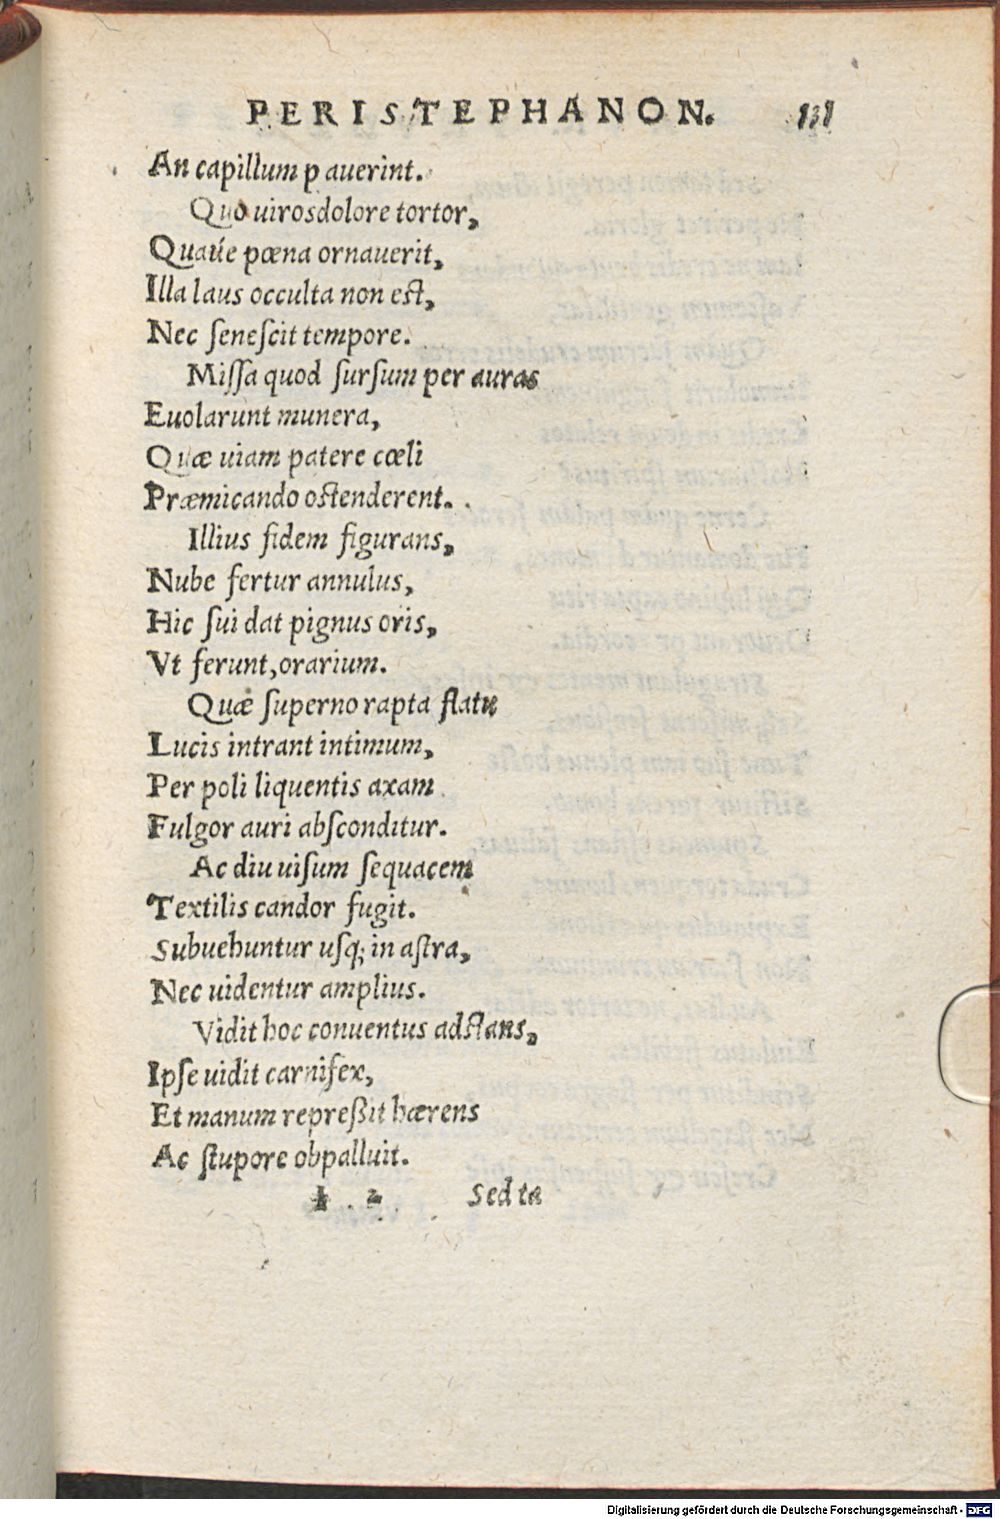 PERISTEPHANON. 131
An capillum p auerint.
Quo uirosdolore tortor,
Quaúe pœna ornauerit,
Illa laus occulta non est,
Nec ſeneſcit tempore.
Miſſa quod ſurſum per auras
Euolarunt munera,
Quæ uiam patere cœli
Præmicando oſtenderent.
Illius fidem figurans,
Nube fertur annulus,
Hic ſui dat pignus oris,
Vt ferunt, orarium.
Quæ ſuperno rapta flatu
Lucis intrant intimum,
Per poli liquentis axam
Fulgor auri abſconditur.
Ac diu uiſum ſequacem
Textilis candor fugit.
Subuehuntur uſq; in aſtra,
Nec uidentur amplius.
Vidit hoc conuentus adſtans,
Ipſe uidit carnifex,
Et manum repreßit hærens
Ac ſtupore obpalluit.
I 2 Sed ta
Digitalisierung gefördert durch die Deutsche Forschungsgemeinschaft - DFG